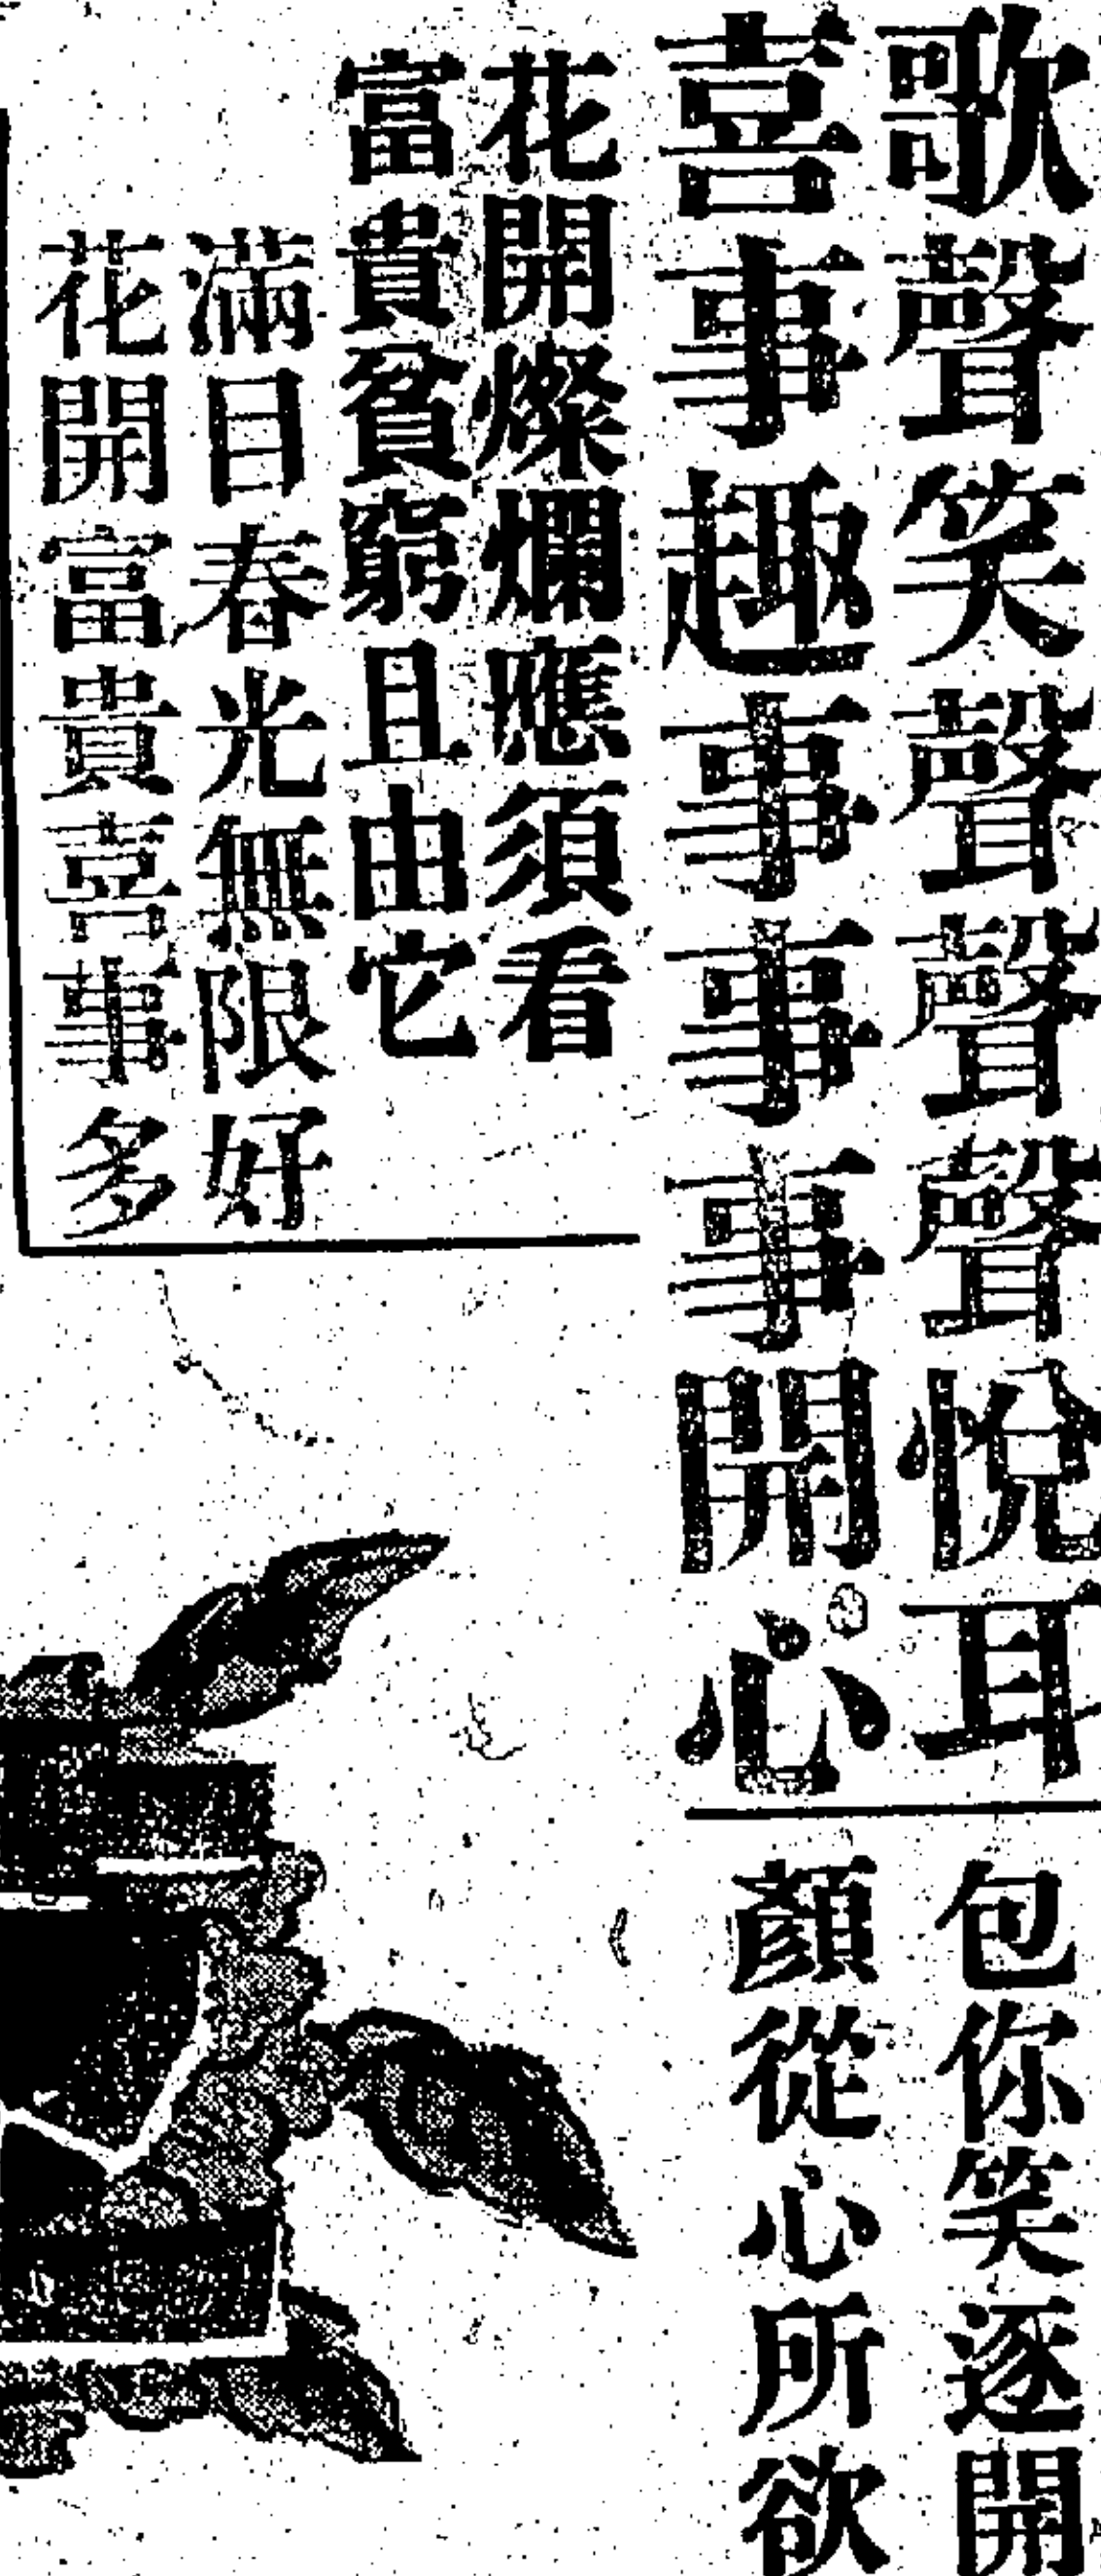 歌聲笑聲聲聲悅耳
喜事趣事事事開心
包你笑逐開
顏從心所欲
花開燦爛應須看
富貴貧窮且由它
滿目春光無限好
花開富貴喜事多